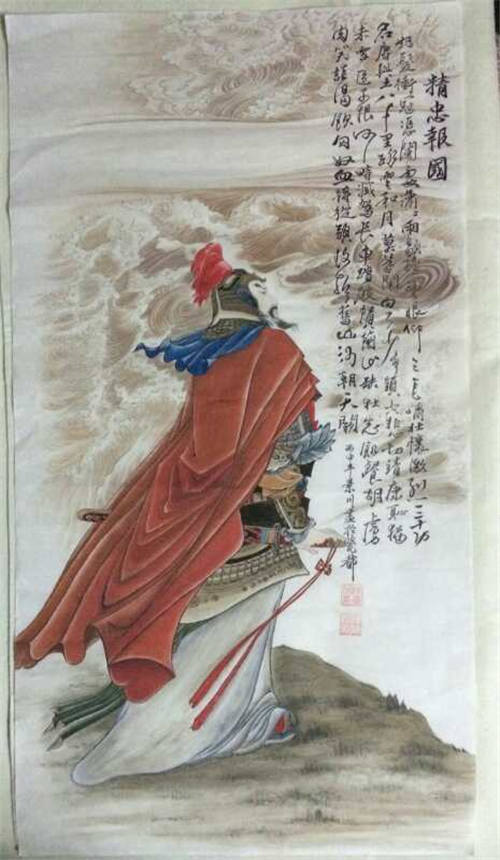 精忠報國
怒髮衝冠憑闌處瀟瀟雨歇抬望眼仰天長嘯壯懷激烈三十功
名塵與土八千里路雲和月莫等閒白了少年頭空悲切靖康恥猶
未雪臣子恨何時滅駕長車踏破賀蘭山缺壯志飢餐胡虜
肉笑談渴飲匈奴血待從頭收拾舊山河朝天闕
丙申年景川畫於瓷都